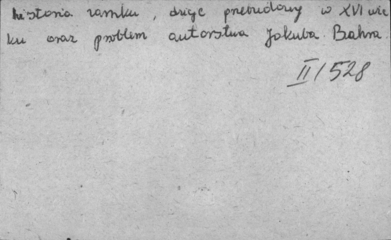 historia zamku, dzieje przebudowy w XVI wie
ku oraz problem autorstwa Jakuba Bahra.
II/528